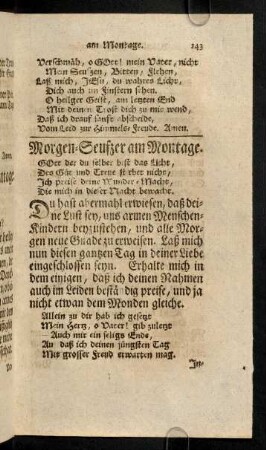 am Montage. 243
Verschmäh, o GOtt! mein Vater, nicht
Mein Seufzen, Bitten, Flehen,
Laß mich, JEsu, du wahres Licht,
Dich auch im Finstern sehen.
O heiliger Geist, am letzten End
Mit deinem Trost dich zu mir wend,
Daß ich drauf sanft abscheide,
Vom Leid zur Himmels-Freude. Amen.
Morgen-Seufzer am Montage.
GOtt der du selber bist das Licht,
Des Güt und Treue stirbet nicht,
Ich preise deine Wunder-Macht,
Die mich in dieser Nacht bewacht.
Du hast abermahl erwiesen, daß dei-
ne Lust sey, uns armen Menschen-
Kindern beyzustehen, und alle Mor-
gen neue Gnade zu erweisen. Laß mich
nun diesen gantzen Tag in deiner Liebe
eingeschlossen seyn. Erhalte mich in
dem einigen, daß ich deinen Nahmen
auch im Leiden beständig preise, und ja
nicht etwan dem Monden gleiche.
Allein zu dir hab ich gesetzt
Mein Hertz, o Vater! gib zuletzt
Auch mir ein seligs End,
Au daß ich deinen jüngsten Tag
Mit grosser Freud erwarten mag.
In-